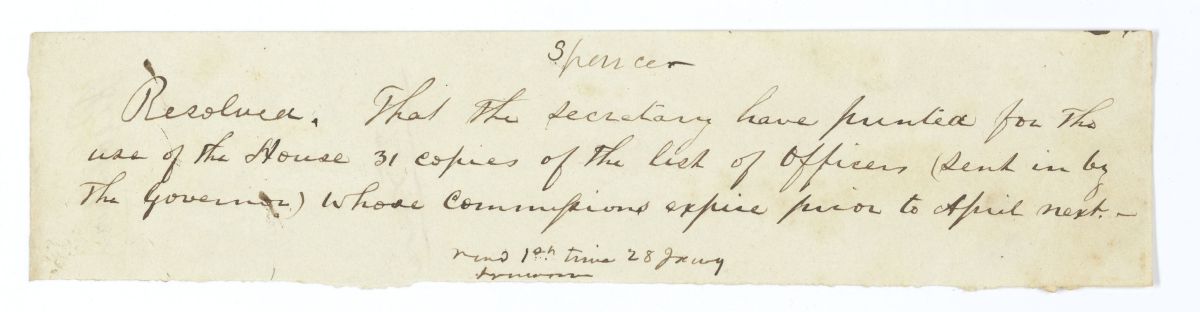 Spencer
Resolved. That the secretary have printed for the
use of the House 31 copies of the list of Officers (sent in by
the Governor) whose commissions expire prior to April next. -
read 1st time 28 Jany